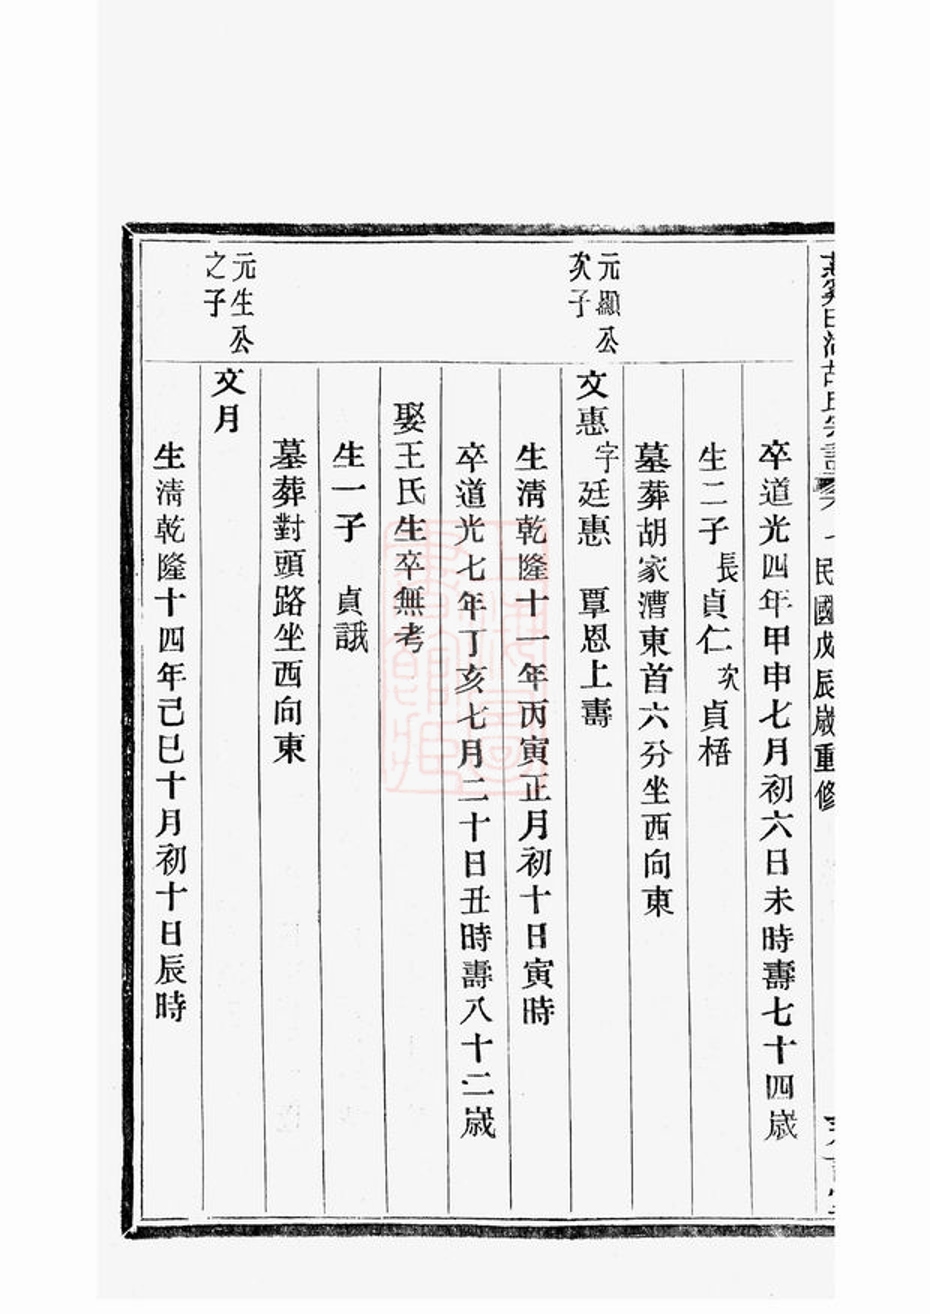 胡氏宗譜
民國戊辰歲重修
卒道光四年甲申七月初六日未時壽七十四歲
生二子 長貞仁 次貞梧
墓葬胡家漕東首六分坐西向東
元顯公
次子
文惠 字廷惠 覃恩上壽
生清乾隆十一年丙寅正月初十日寅時
卒道光七年丁亥七月二十日丑時壽八十二歲
娶王氏生卒無考
生一子 貞誐
墓葬對頭路坐西向東
元生公
之子
文月
生清乾隆十四年己巳十月初十日辰時